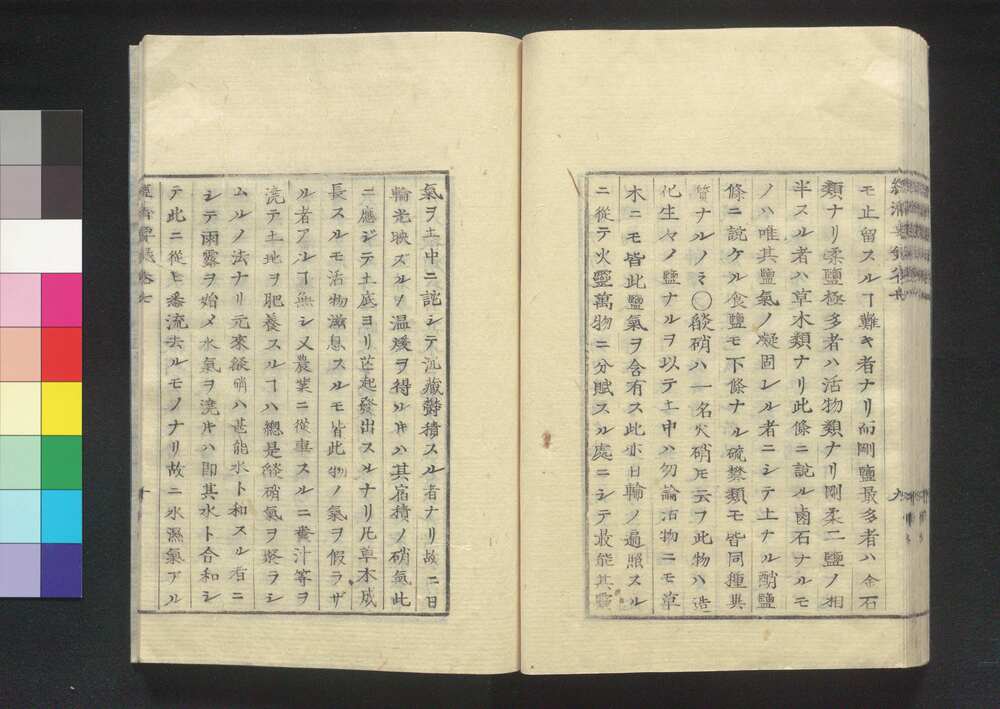 モ止留スルヿ難キ者ナリ而剛鹽最多者ハ金石
類ナリ柔鹽極多者ハ活物類ナリ剛柔二鹽ノ相
半スル者ハ草木類ナリ此條ニ說ル鹵石ナルモ
ノハ唯其鹽氣ノ凝固シル者ニシテ上ナル酷鹽
條ニ說ケル食鹽モ下條ナル硫礬類モ皆同種異
質ナルノミ〇燄硝ハ一名火硝モ云フ此物ハ造
化生々ノ鹽ナルヲ以テ土中ハ勿論活物ニモ草
木ニモ皆此鹽氣ヲ含有ス此亦日輪ノ遍照スル
ニ從テ火鹽萬物ニ分賦スル處ニシテ最能其
九
氣ヲ土中ニ詫シテ沉藏欝積スル者ナリ故ニ日
輪光映ズルヿ温煖ヲ得ルキハ其宿積ノ硝氣此
ニ應ジテ土底ヨリ芒起發出スルナリ凡草木成
長スルモ活物滋息スルモ皆此物ノ氣ヲ假ラザ
ル者アルヿ無シ又農業ニ從事スルニ糞汁等ヲ
澆テ土地ヲ肥養スルヿハ總是燄硝氣ヲ聚ラシ
ムルノ法ナリ元來燄硝ハ甚能水ト和スル者ニ
シテ雨露ヲ始メ水氣ヲ澆キハ即其水ト合和シ
テ此ニ從ヒ番流去ルモノナリ故ニ水濕氣アル
十